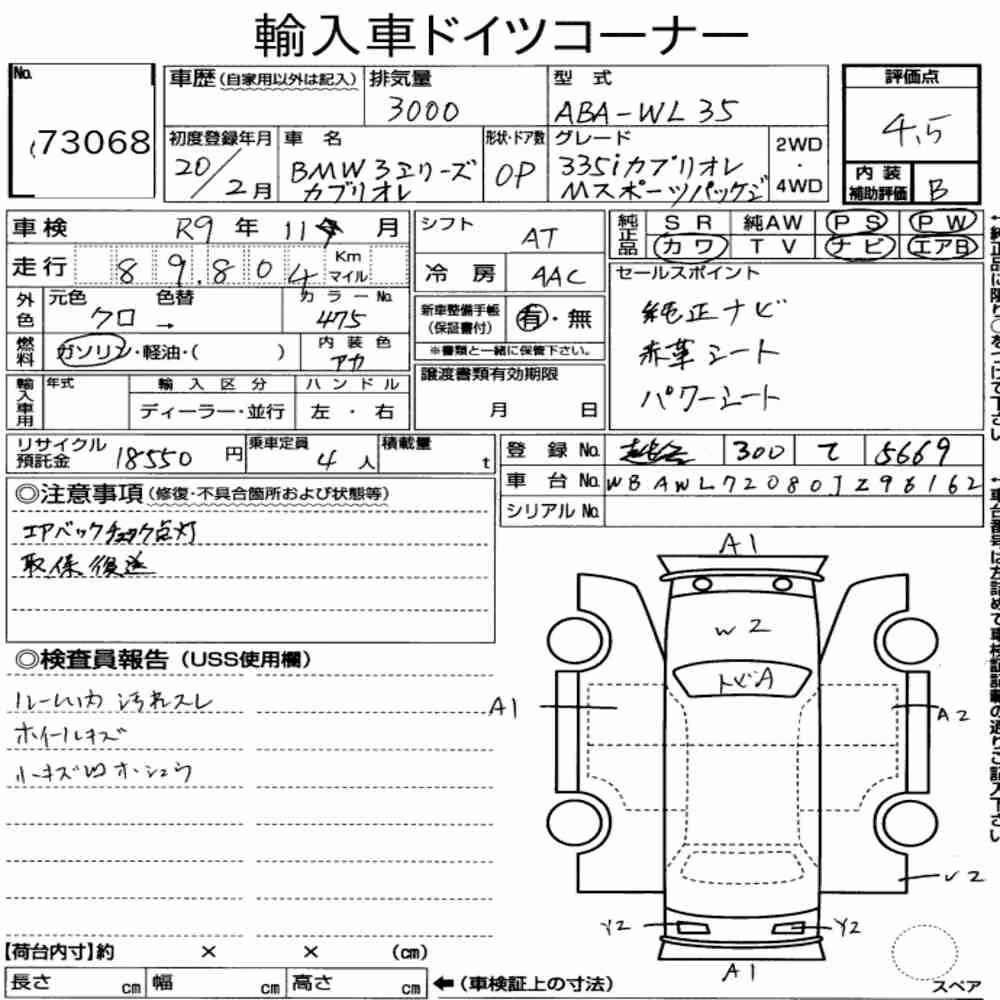 輸入車ドイツコーナー
No.
73068
車歴(自家用以外は記入)
排気量
3000
型式
ABA-WL35
評価点
4.5
内装
補助評価
B
初度登録年月
20/2月
車名
BMW3シリーズ
カブリオレ
形状・ドア数
OP
グレード
335iカブリオレ
Mスポーツパッケジ
2WD
・
4WD
車検 R9年11月
シフト
AT
純正品
SR 純AW PS PW
カワ TV ナビ エアB
走行 89.804 Km マイル
冷房 AAC
外色
元色 色替
クロ →
カラーNo.
475
新車整備手帳
(保証書付)
有・無
※書類と一緒に保管下さい。
セールスポイント
純正ナビ
赤革シート
パワーシート
燃料
ガソリン・軽油・( )
内装色
アカ
輸入車用
年式
輸入区分
ディーラー・並行
ハンドル
左・右
譲渡書類有効期限
月 日
リサイクル
預託金
18550円
乗車定員
4人
積載量
t
登録No. 300 て 5669
車台No. WBAWL72080JZ96162
シリアルNo.
◎注意事項(修復・不具合箇所および状態等)
エアバックチェック点灯
取保後送
◎検査員報告(USS使用欄)
ルーム内汚れスレ
ホイールキズ
小キズ凹
A1
W2
トビA
A1
A2
V2
Y2
Y2
A1
スペア
【荷台内寸】約 × × (cm)
長さ cm 幅 cm 高さ cm
←(車検証上の寸法)
↑純正品に限り○をつけて下さい